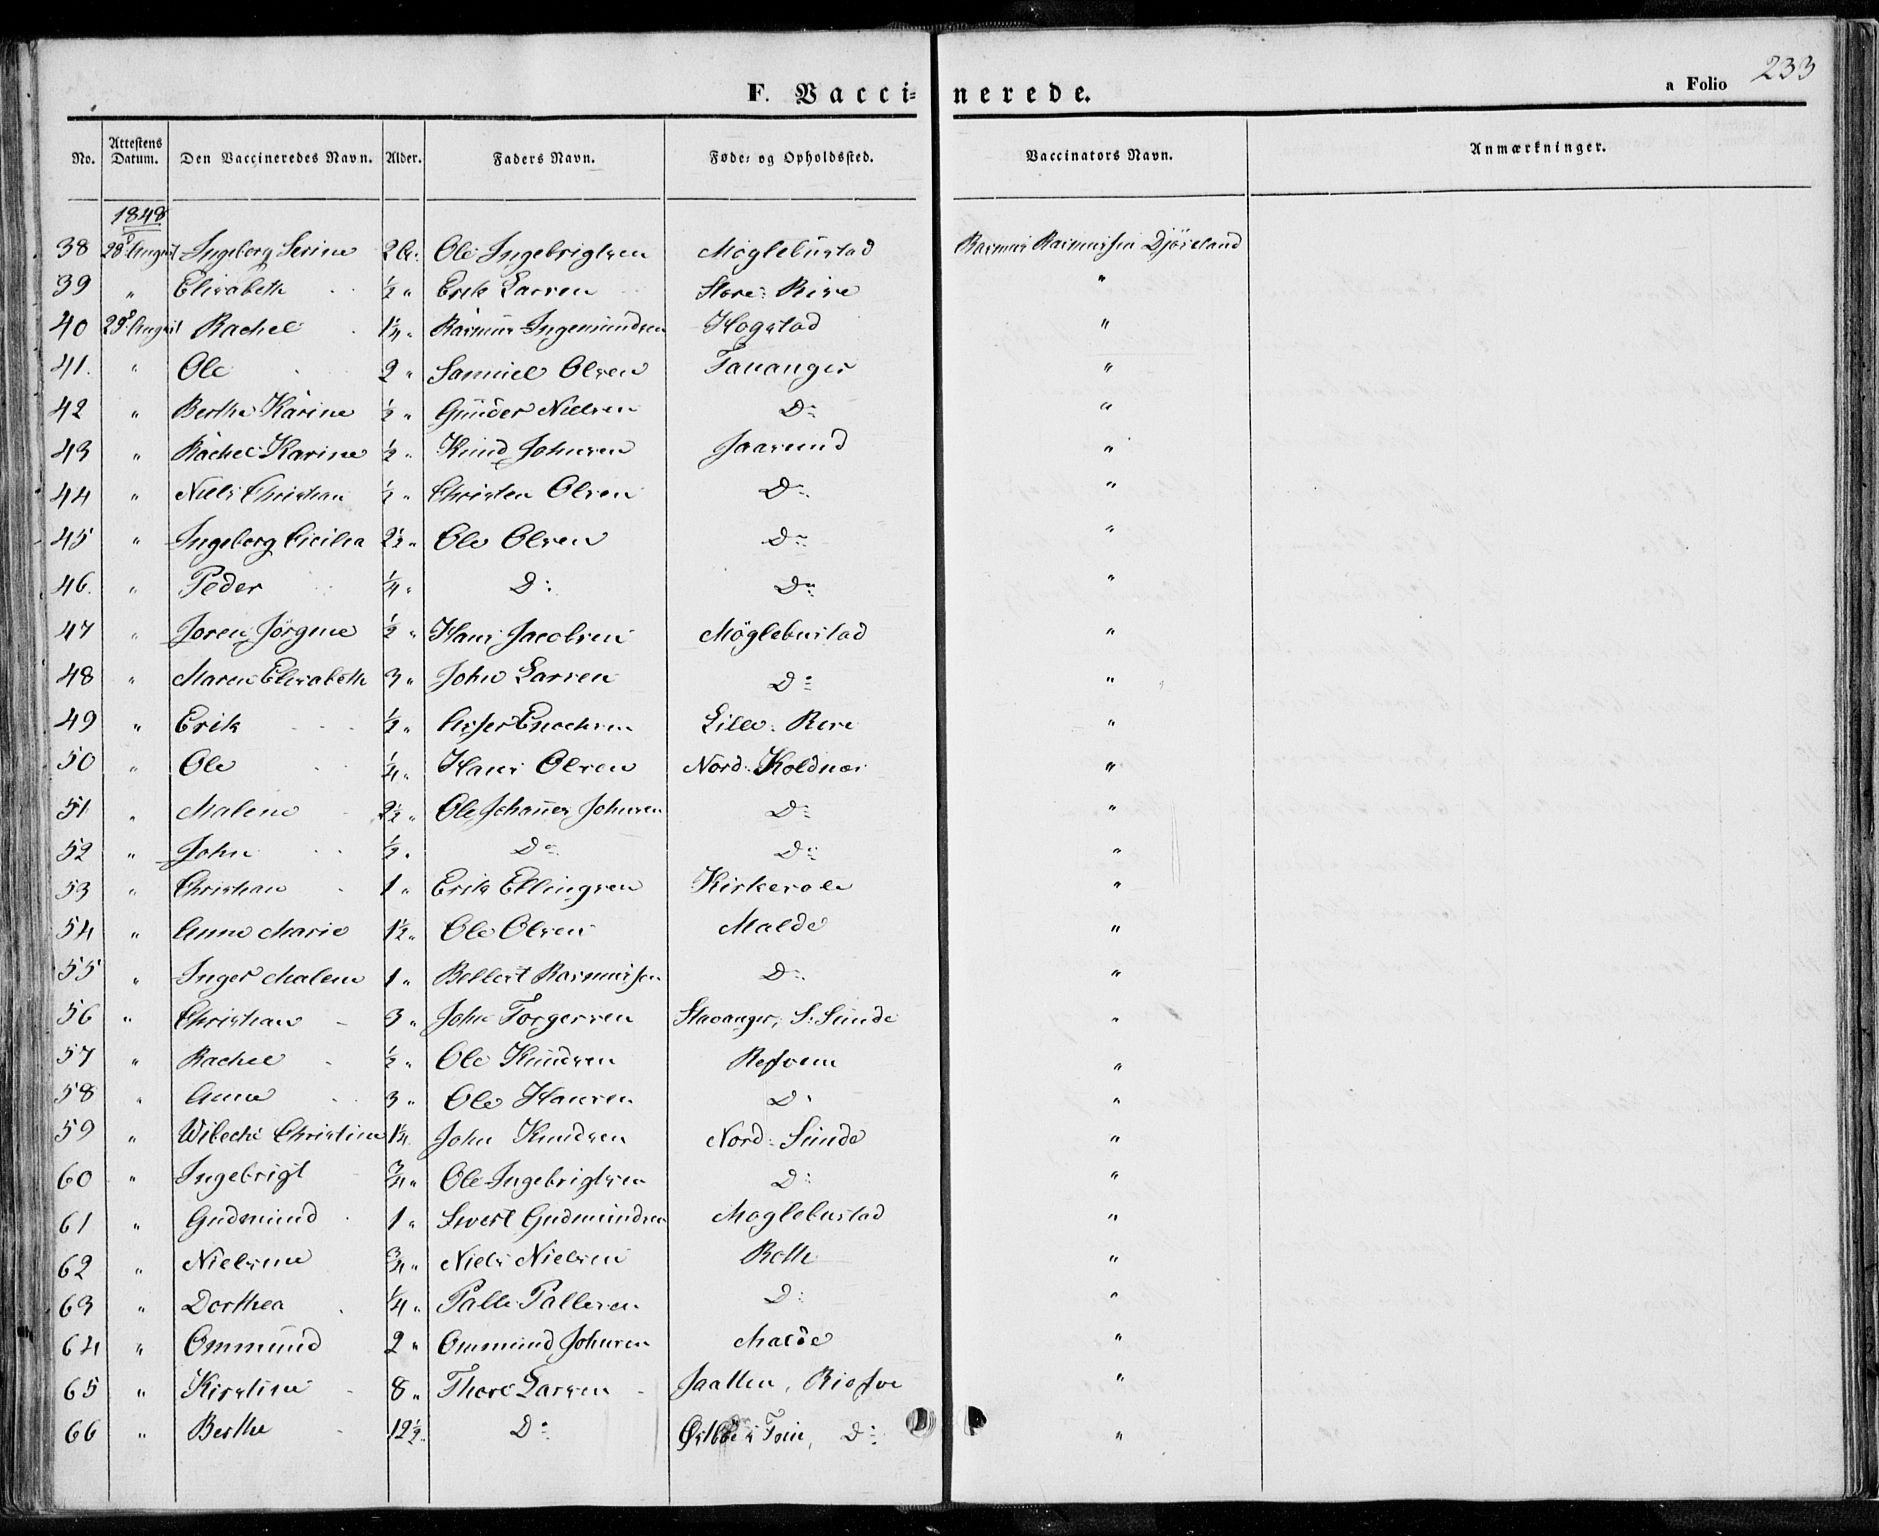 F. Vaccinerede.
a Folio 233
No. Attestens Datum. Den Vaccineredes Navn. Alder. Faders Navn. Føde- og Opholdssted. Vaccinators Navn. Anmærkninger.
1848
38 28de August Ingeborg Serine 2 Ar: Ole Ingebrigtsen Møglebustad Rasmus Rasmussen
39 " Elisabeth ½ " Erik Larsen Store-Risse "
40 29de August Rachel 1¼ " Rasmus Ingemundsen Hogstad "
41. " Ole 2 " Samuel Olsen Tananger "
42 " Berthe Karine ½ " Gunder Nielsen Do "
43 " Rachel Karine ½ " Knud Johnsen Jaasund "
44 " Niels Christian ½ " Christen Olsen Do "
45 " Ingeborg Cicilia 2½ " Ole Olsen Do "
46. " Peder ¼ " D: Do "
47 " Joren Jørgine ½ " Hans Jacobsen Møglebustad "
48 " Maren Elisabeth 3 " John Larsen Do "
49 " Erik ½ " Enochsen Lille- "
50 " Ole ¼ " Hans Olsen Nord-Koldnæs "
51 " Malene 2½ " Ole Johannes Johnsen Do "
52 " John ½ " Do Do "
53 " Christian 1 " Erik Ellingsen Kirkesole "
54 " Anne Marie 1½ " Ole Olsen Malde "
55 " Inger Malene 1 " Rasmussen D: "
56 " Christian 3 " John Torgersen Stavanger, S: Sunde "
57 " Rachel ½ " Ole Knudsen "
58 " Anne 3 " Ole Hansen D: "
59 " Wibeche Christine 1¼ John Knudsen Nord-Sunde "
60 " Ingebrigt ¾ " Ole Ingebrigtsen D: "
61 " Gudmund 1 " Sivert Gudmundsen Møglebustad "
62 " Nielsine ¾ " Niels Nielsen Rotte "
63 " Dorthea ¼ " Palle Pallesen D: "
64 " Ommund 2 " Ommund Johnsen Malde "
65 " Kirstine 8 " Thore Larsen Jaatten, "
66 " Berthe 12½ " Do Do "